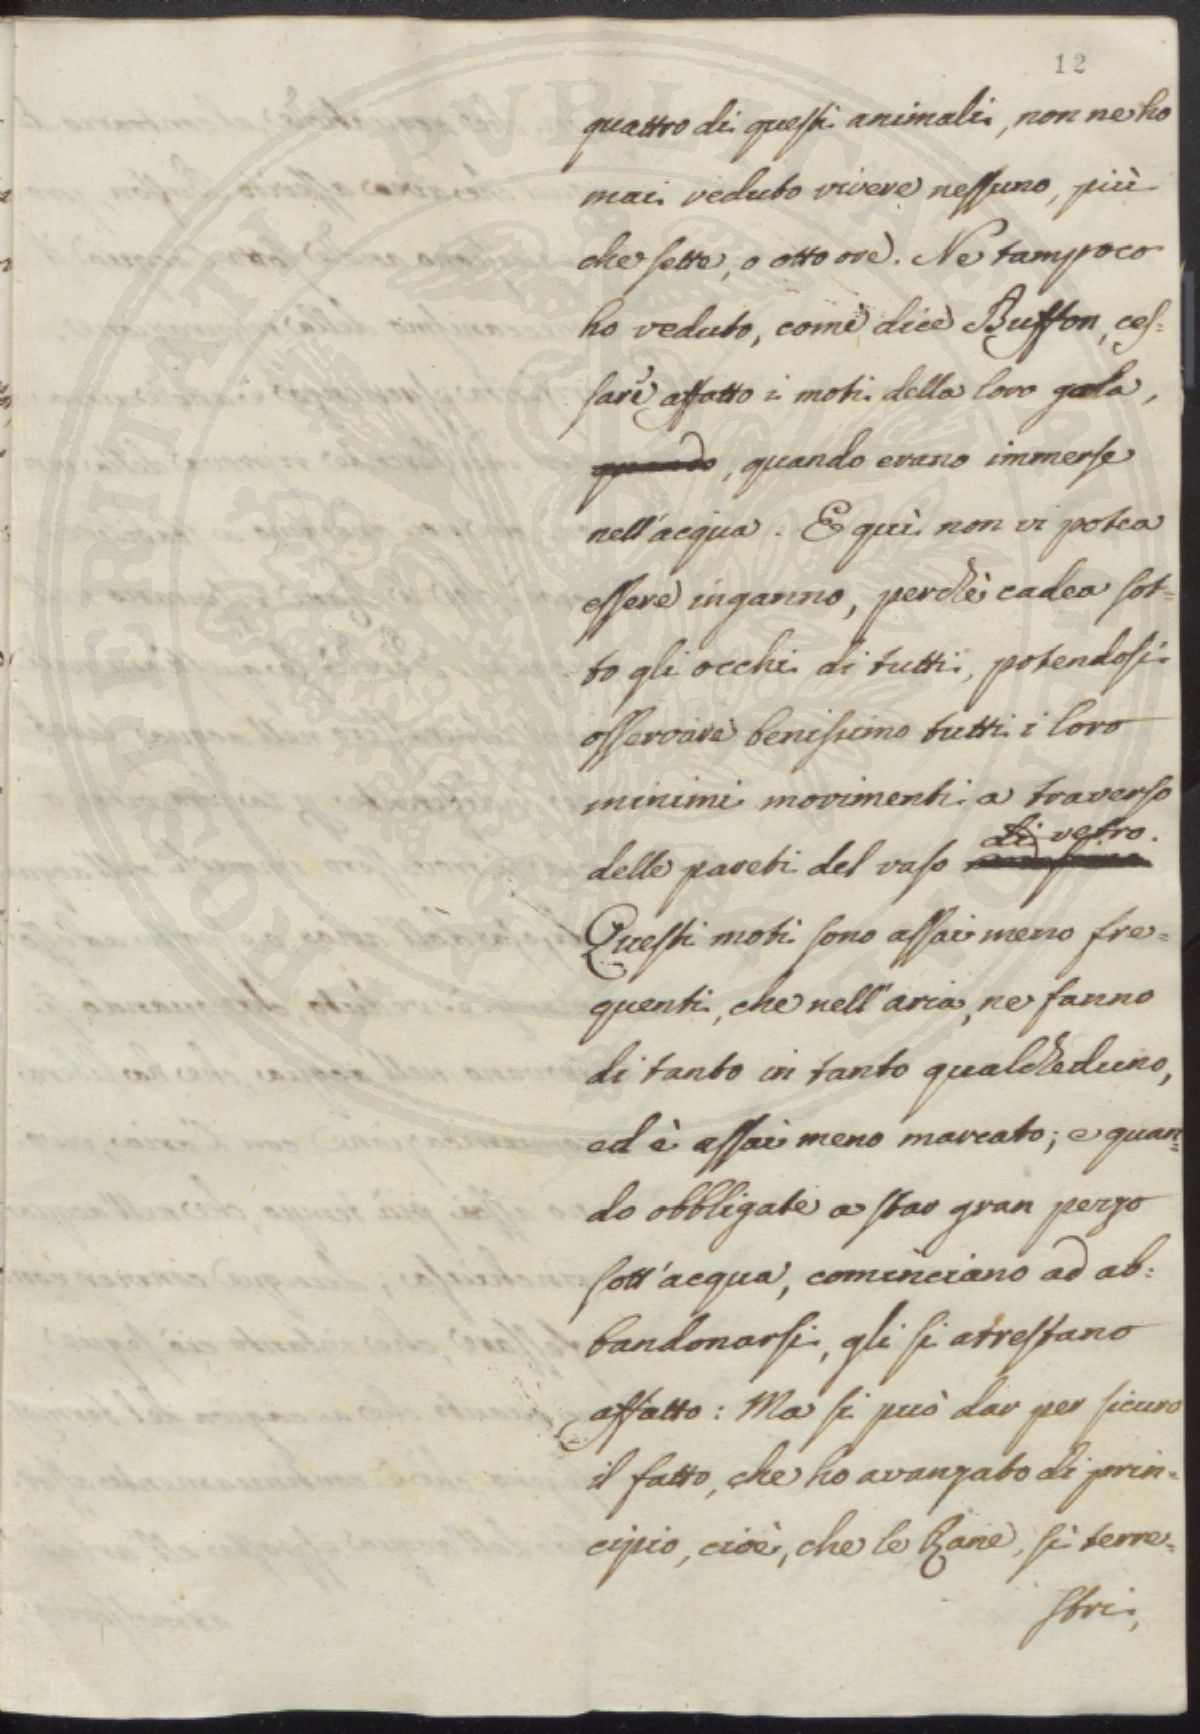 12
quattro di questi animali, non ne ho
mai veduto vivere nessuno, più
che sette, o otto ore. Ne tampoco
ho veduto, come dice Buffon, ces=
sare affatto i moti della loro gola,
quando, quando erano immerse
nell'acqua. E quì non vi potea
essere inganno, perchè cadea sot=
to gli occhi di tutti, potendosi
osservare benissimo tutti i loro
minimi movimenti a traverso
di vetro.
delle pareti del vaso
Questi moti sono assai meno fre=
quenti, che nell'aria, ne fanno
di tanto in tanto qualcheduno,
ed è assai meno marcato; e quan=
do obbligate a star gran pezzo
sott'acqua, cominciano ad ab=
bandonarsi, gli si arrestano
affatto: Ma si può dar per sicuro
il fatto, che ho avanzato di prin=
cipio, cioè, che le Rane, sì terre=
stri,
PROSPERITATI PUBLICAE